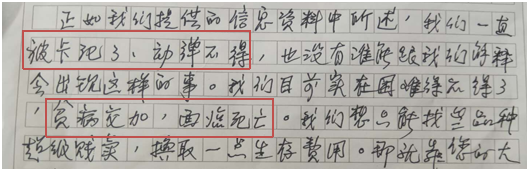 正如我们提供的信息资料中所述，我们一直
被卡死了，动弹不得，也没有谁能跟我们解释
会出现这样的事。我们目前实在困难得不得了
，贫病交加，面临死亡。我们想只能找些品种
超级贱卖，换取一点生存费用。那就靠您的大